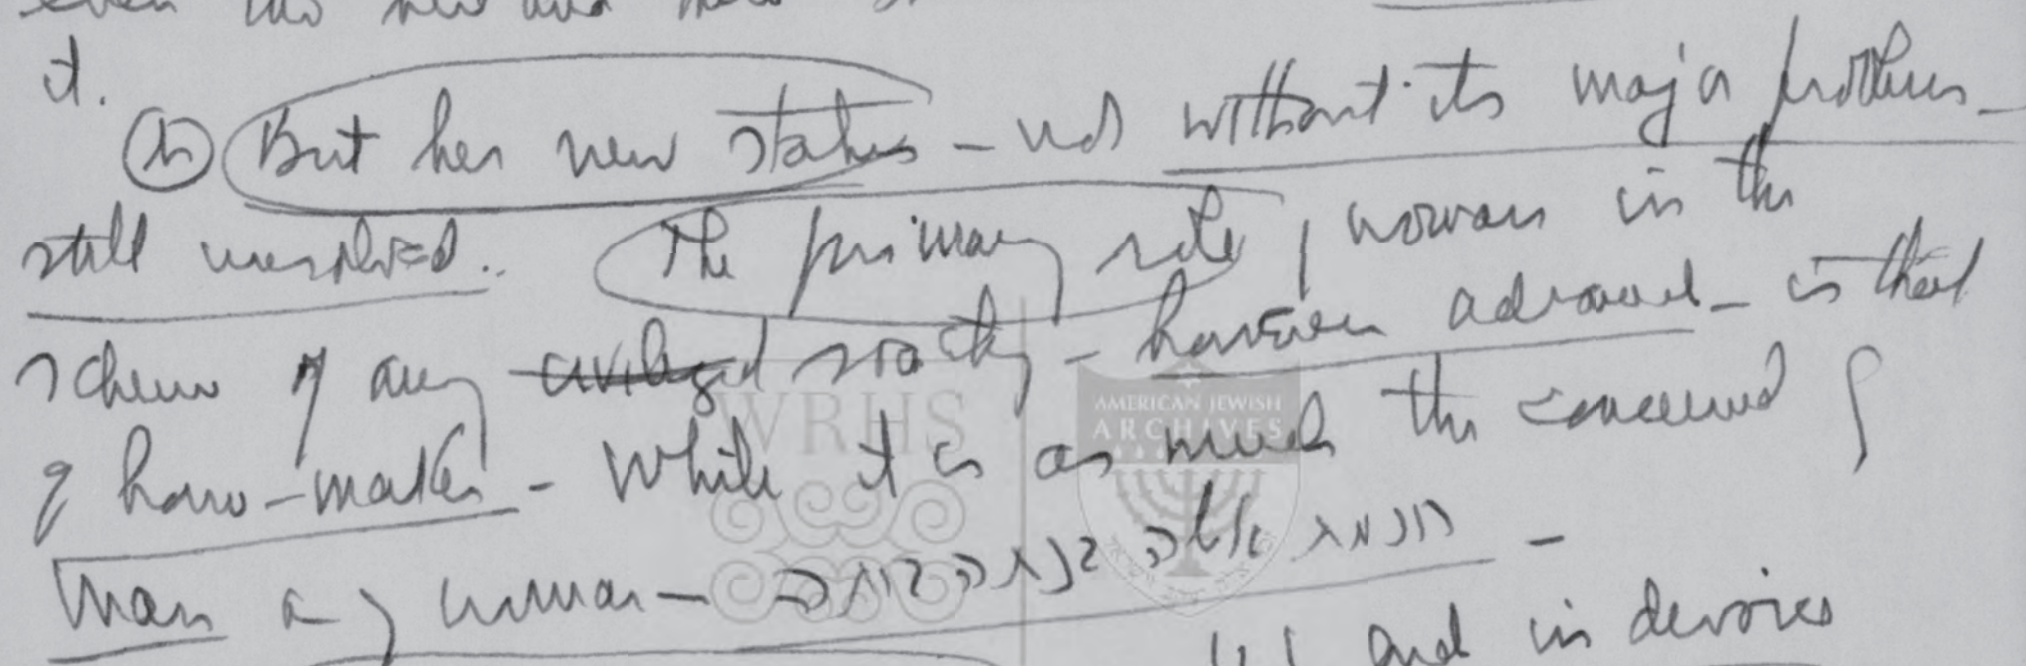 even new and
it.
(b) But her new status – not without its major problems –
still unresolved.. The primary role of woman in the
scheme of any civilized society – however advanced – is that
of home-maker – While it is as much the concern of
Man as of woman – חכמת אשה בנתה ביתה –
and in
WRHS
AMERICAN JEWISH
ARCHIVES